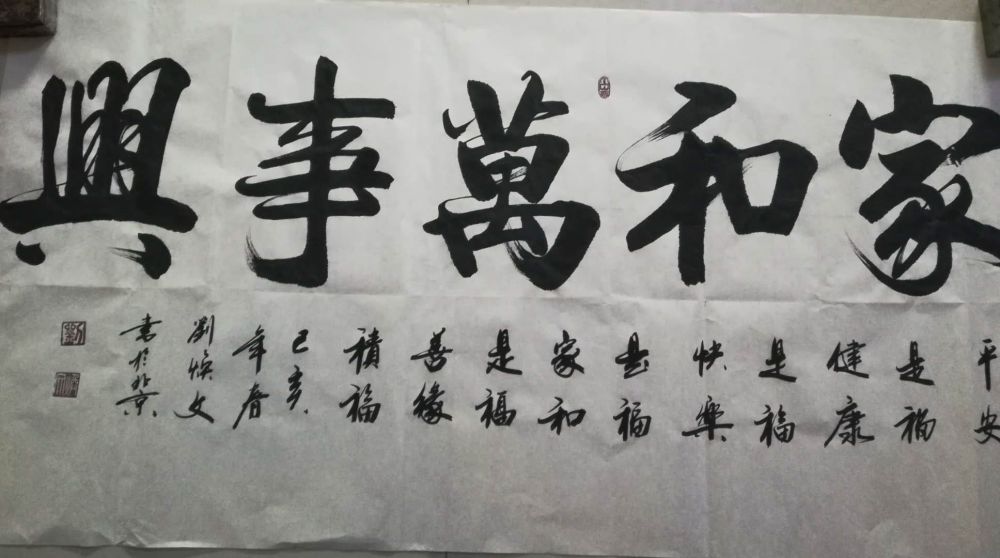 家和萬事興
平安
是福
健康
是福
快樂
是福
家和
是福
善緣
積福
己亥
年春
劉煥文
書於北京
劉